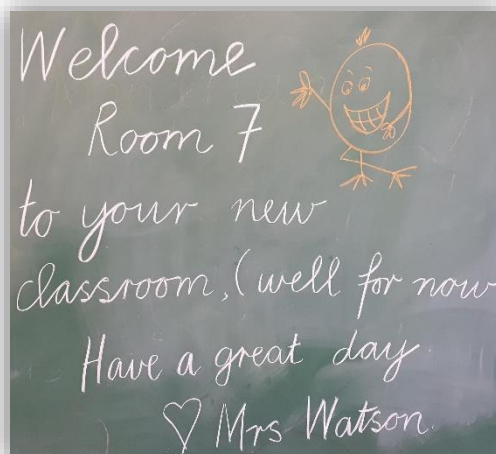 Welcome
Room 7
to your new
classroom, (well for now
Have a great day.
♡ Mrs Watson.